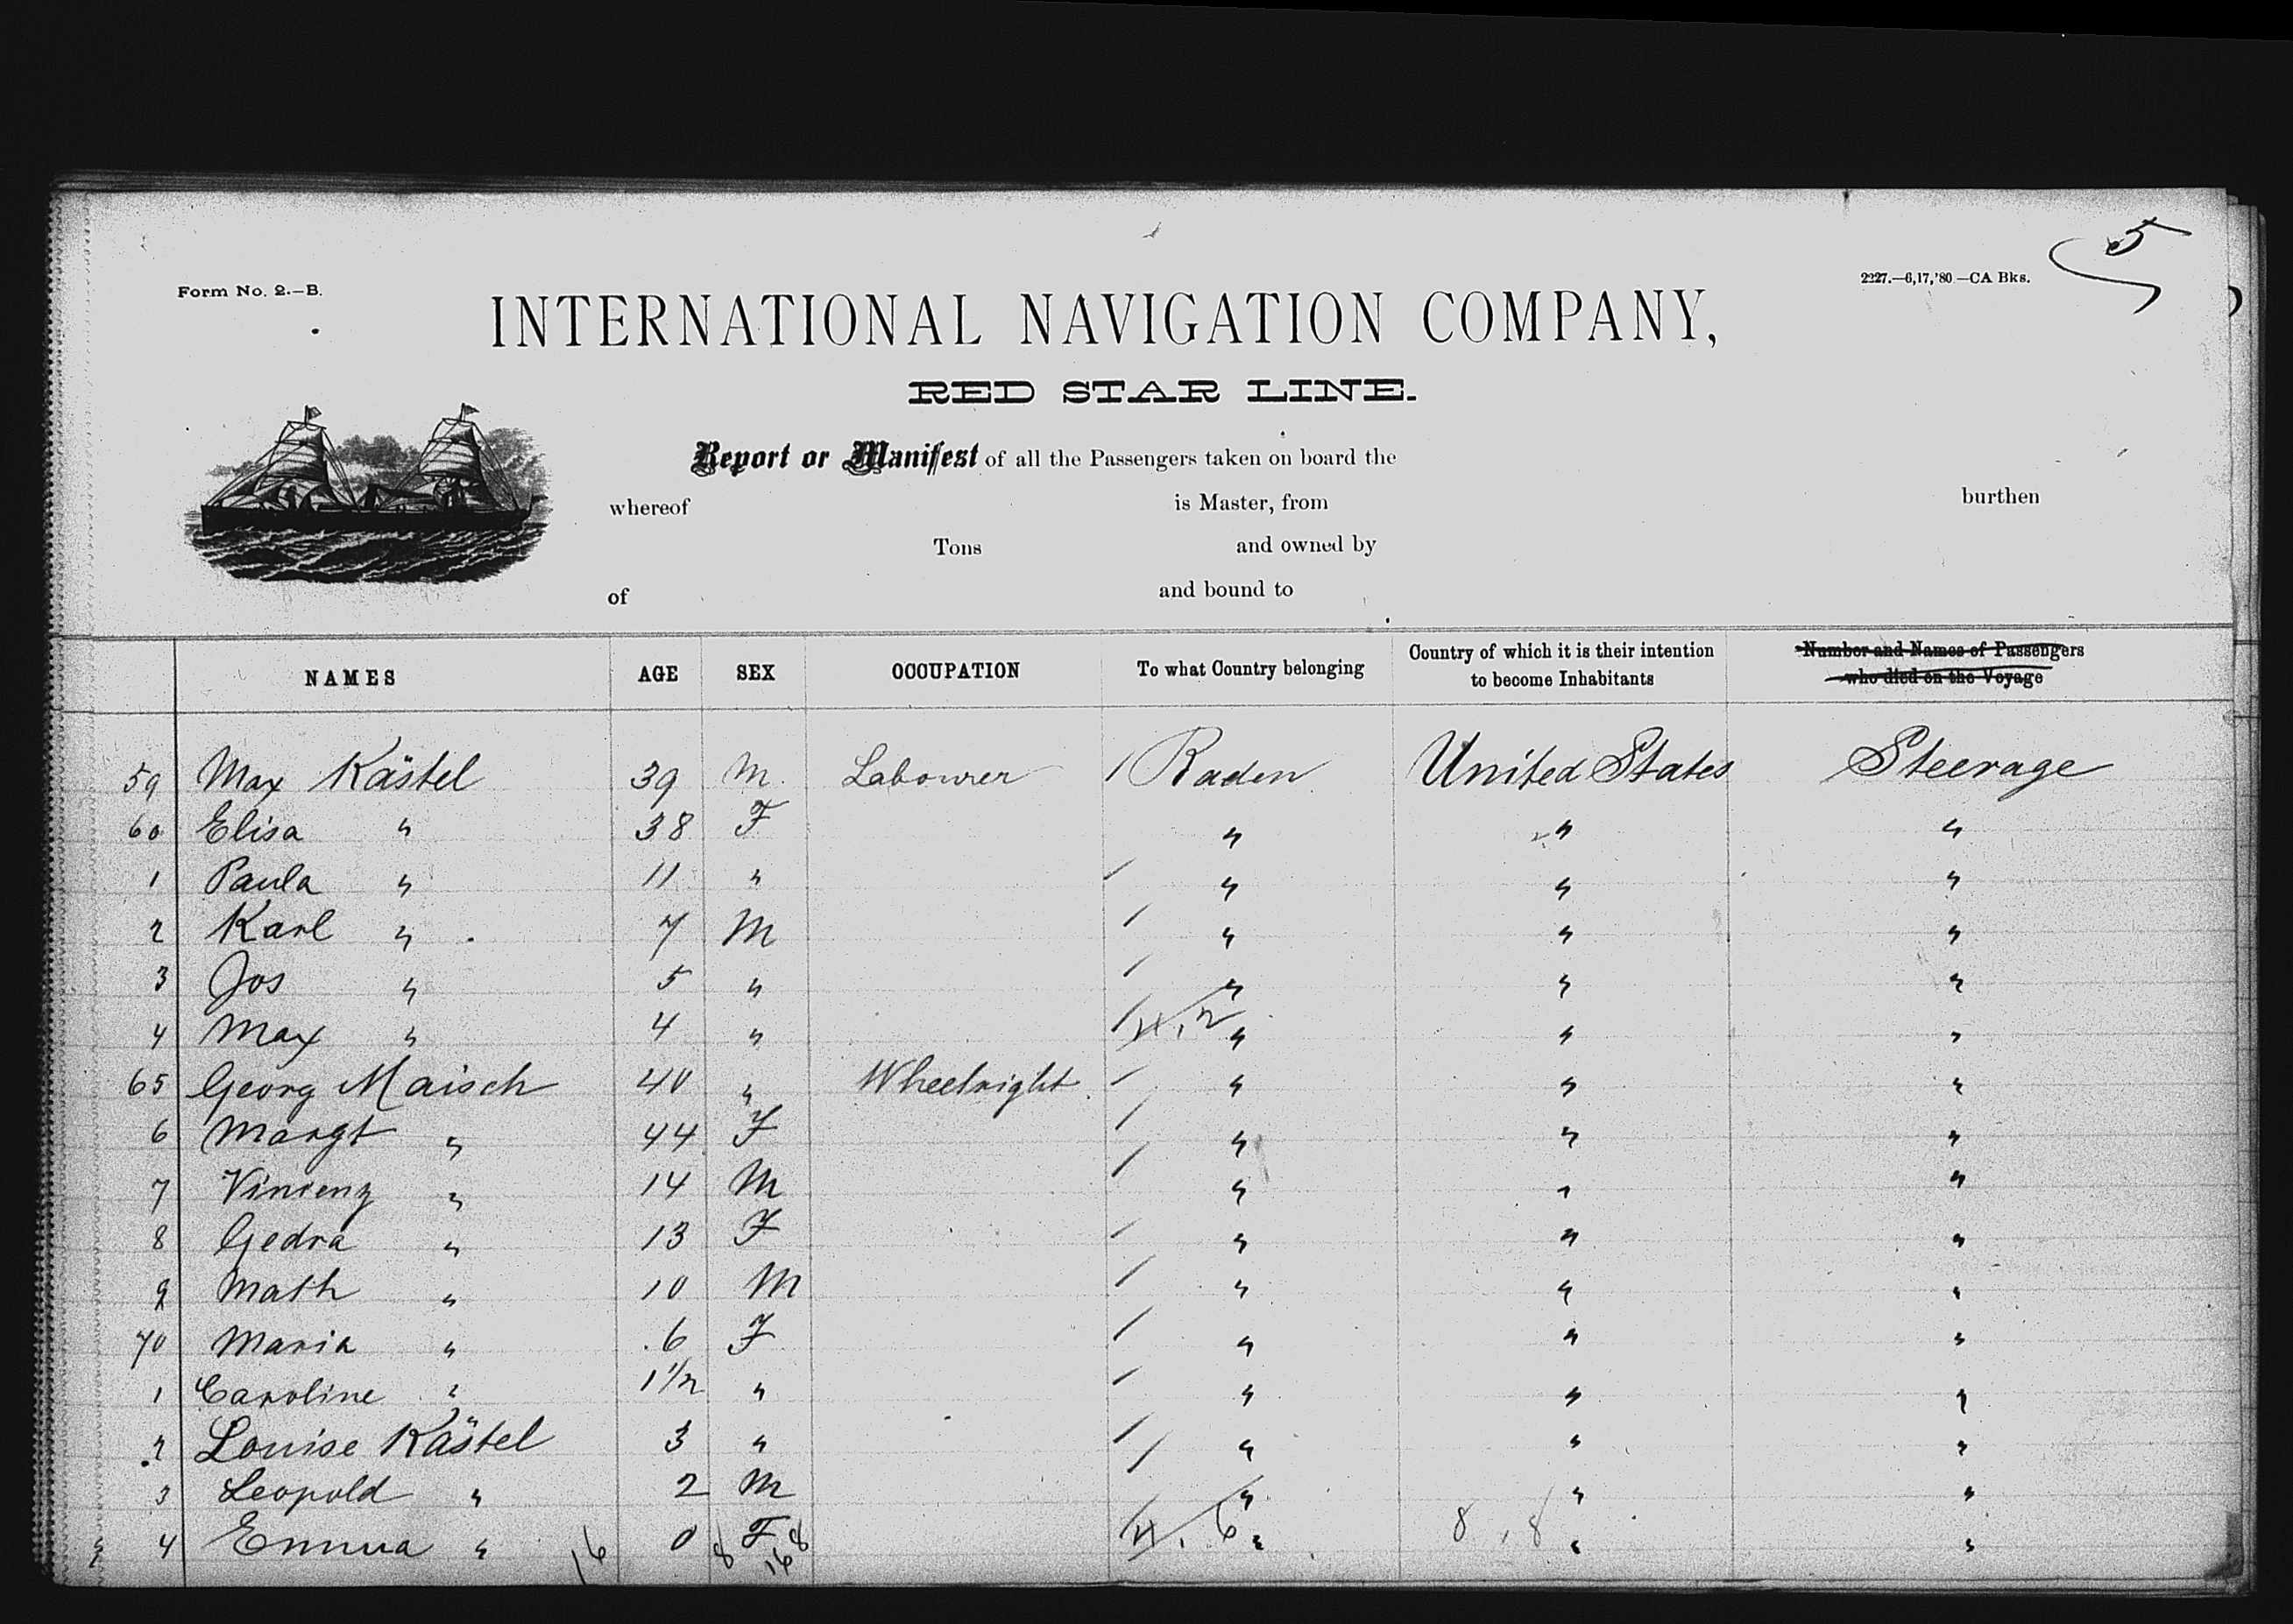 5
Form No. 2.—B.
2227.—6,17,'80—CA Bks.
INTERNATIONAL NAVIGATION COMPANY,
RED STAR LINE.
Report or Manifest of all the Passengers taken on board the
whereof is Master, from burthen
Tons and owned by
of and bound to
NAMES AGE SEX OCCUPATION To what Country belonging Country of which it is their intention to become Inhabitants Number and Names of Passengers who died on the Voyage
59 Max Kästel 39 M. Labourer / Baden United States Steerage
60 Elisa " 38 F " " "
1 Paula " 11 " / " " "
2 Karl " 7 M / " " "
3 Jos " 5 " / " " "
4 Max " 4 " / 4, 2 " " "
65 Georg Maisch 40 " Wheelright / " " "
6 Margt " 44 F / " " "
7 Vincenz " 14 M / " " "
8 Gedra " 13 F / " " "
9 Math " 10 M / " " "
70 Maria " 6 F / " " "
1 Caroline " 1 1/2 " / " " "
2 Louise Kästel 3 " / " " "
3 Leopold " 2 M / " " "
4 Emma " 16 0 8 F 8 16 / 4, 6 " 8, 8 " "